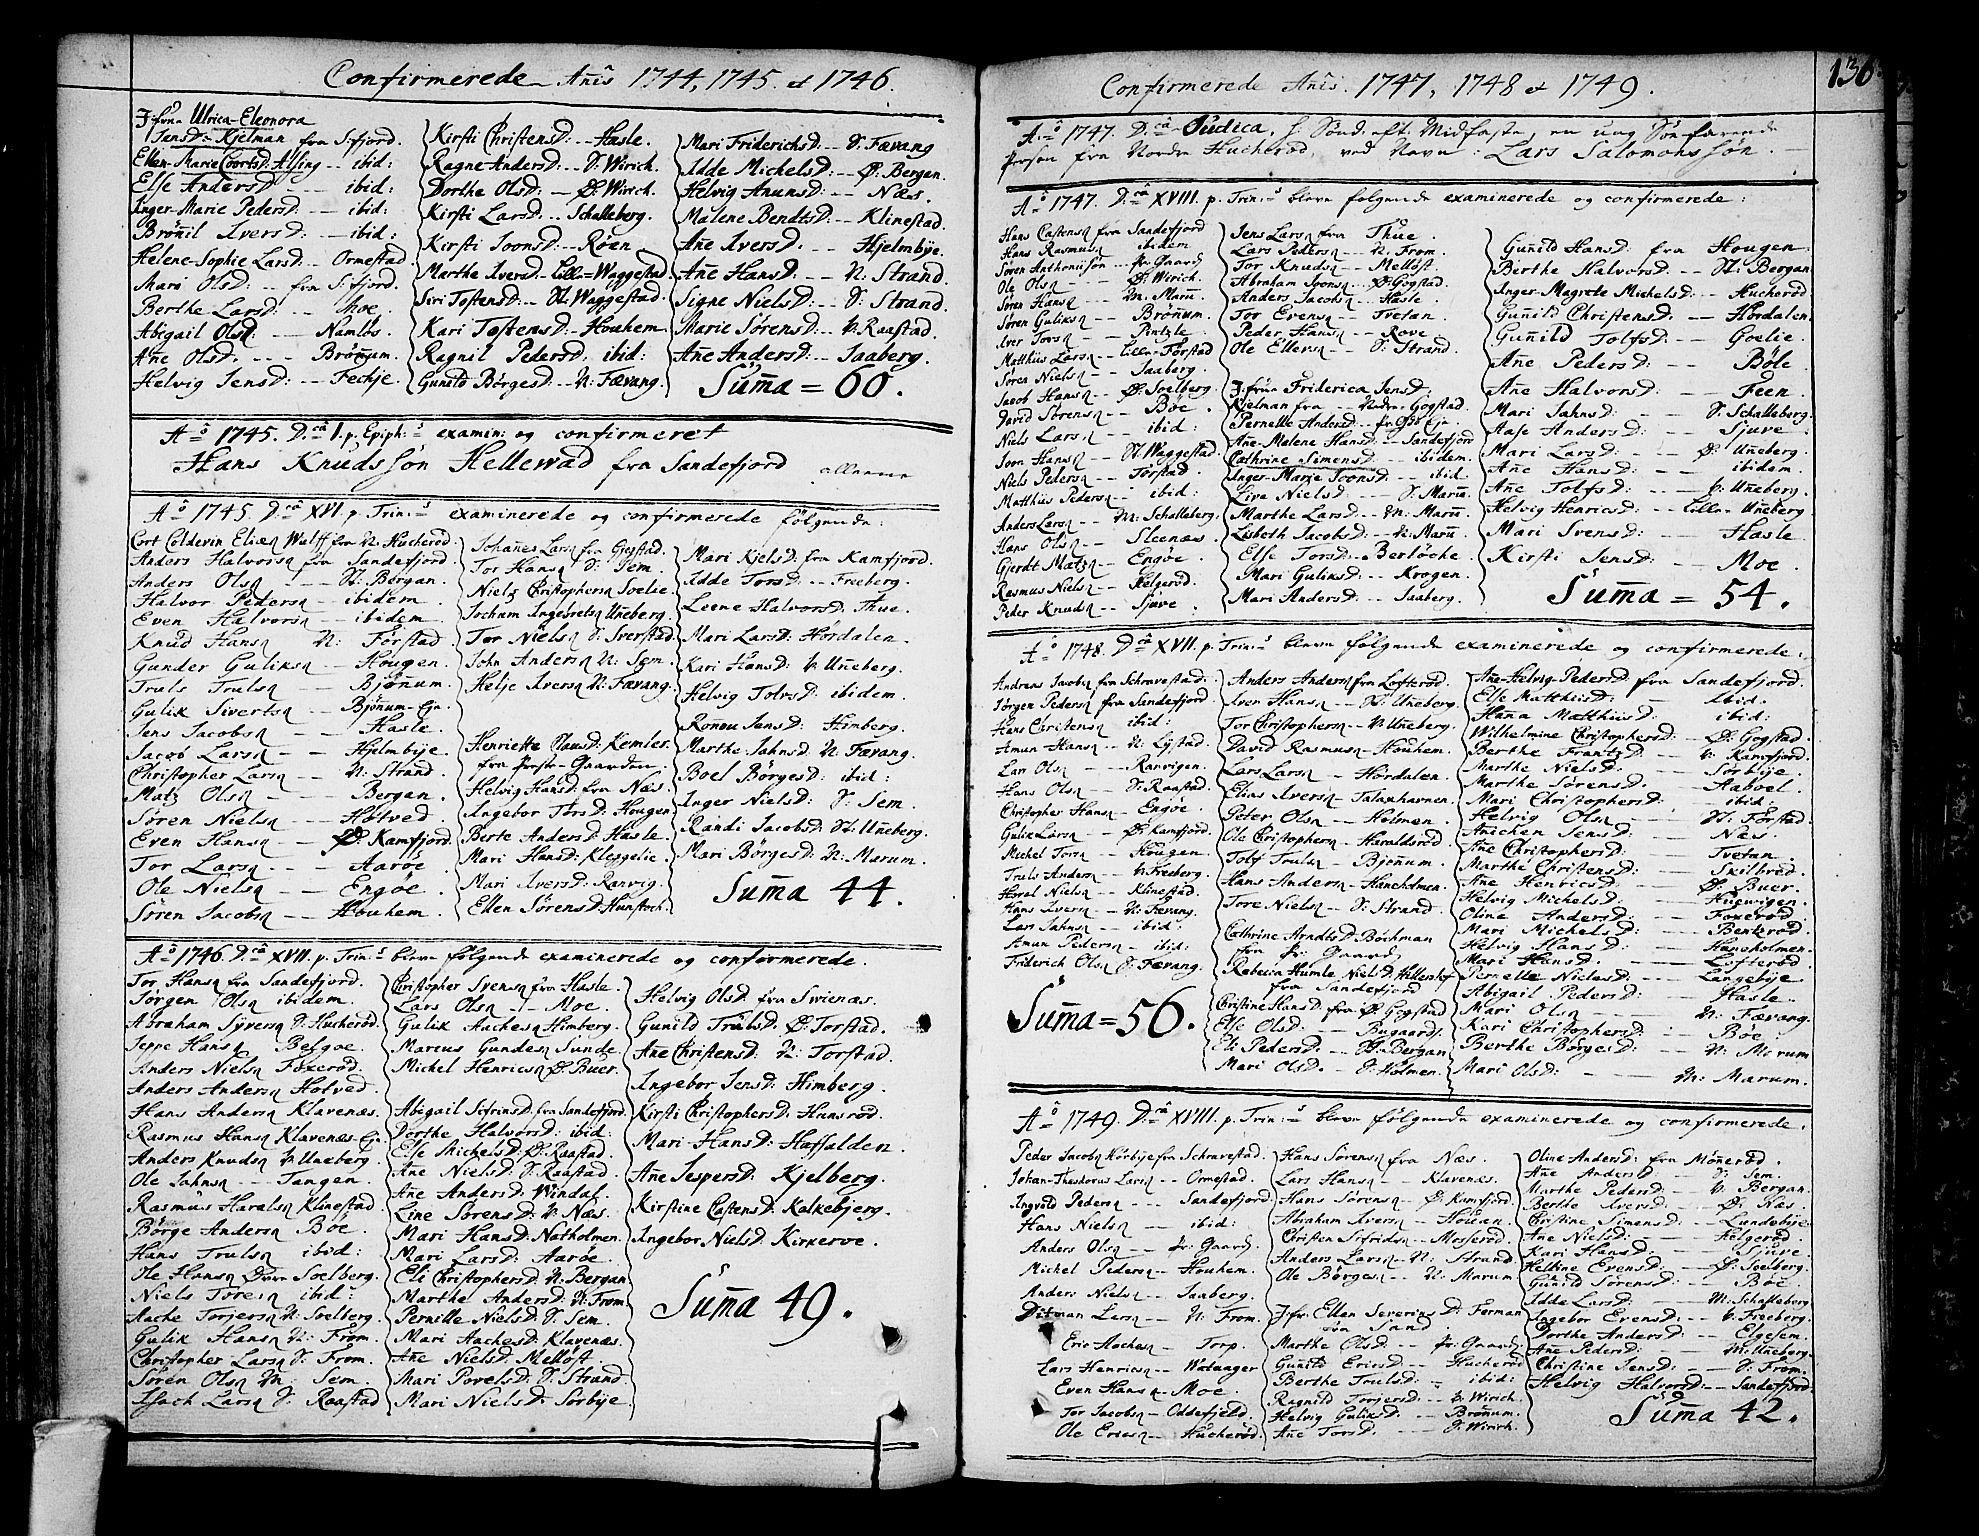 Confirmerede Añis 1744, 1745. et 1746.
Jfru Ulrica-Eleonora
JensD: Kjelman fra S:fjord.
Ellen-Marie CoortsD: Alsing -- ibid:
Else AndersD: --- ibid:
Inger-Marie PedersD: --- ibid:
Brönil IversD: --- ibid:
Helene-Sophie LarsD: -- Ormestad
Mari OlsD: -- fra S:fjord.
Berthe LarsD: -- Moe.
Abigail OlsD: --- Namløs.
Añe OlsD: --- Brönum.
Helvig JensD: -- Fechje.
Kirsti ChristensD: -- Hasle.
Ragne AndersD: -- S: Wirich.
Dorthe OlsD: -- Ø: Wirich.
Kirsti LarsD: -- Schalleberg.
Kirsti JoonsD: -- Røen.
Marthe IversD: -- Lille-Waggestad
Siri TostensD: -- St. Waggestad.
Kari TostensD: -- Houhem.
Ragnil PedersD: ibid:
Gunild BörgesD: -- N: Fævang.
Mari FriderichsD: -- S: Fævang
Idde MichelsD: -- Ø: Bergan.
Helvig AmunsD: -- Næs.
Malene BendtsD: -- Klinestad.
Añe IversD: -- Hjelmbye.
Añe HansD: -- N: Strand.
Signe NielsD: -- S: Strand.
Marie SørensD: -- V: Raastad.
Añe AndersD: -- Saaberg.
Suma = 60.
Aº 1745. D.câ I. p. Epiph: examin: og confirmeret
Hans Knudssøn Hellewad fra Sandefjord allene
Aº 1745 D.câ XVI. p. Trin: examinerede og confirmerede følgende:
Cort Coldevin Eliæs Wulff fra N: Hucherød.
Anders Halvorsn fra Sandefjord.
Anders Olsn -- St: Bergan.
Halvor Pedersn -- ibidem.
Even Halvorsn -- ibidem.
Knud Hansn N: Torstad.
Gunder Guliksn -- Hougen.
Truls Trulsn -- Bjønum.
Gulik Sivertsn -- Bjønum-Eje.
Jens Jacobsn -- Hasle.
Jacob Larsn -- Hjelmbye.
Christopher Larsn -- N: Strand.
Matz Olsn -- Bergan.
Søren Nielsn -- Hotved.
Even Hansn -- Ø: Kamfjord.
Tor Larsn -- Aarøe.
Ole Nielsn -- Engøe.
Søren Jacobsn -- Houhem.
Johañes Larsn fra Gogstad.
Tor Hansn S: Sem.
Niels Christophersn Goelie.
Jocham Ingebretsn Uneberg.
Tor Nielsn S: Sverstad.
John Andersn N: Sem.
Helje Iversn N: Fævang.
Henriette ClausD: Kemler.
fra Preste-Gaarden.
Helvig HansD: fra Næs.
Ingebor TorsD: Hougen
Berte AndersD: Hasle.
Mari HansD: Klesgelie.
Mari IversD: Ranvig.
Ellen SørensD: Hunstoch.
Mari KjelsD: fra Kamfjord.
Idde TorsD: -- Freberg.
Leene HalvorsD: Thue.
Mari LarsD: Hørdalen.
Kari HansD: V: Uneberg.
Helvig TolvsD: ibidem.
Ronou JensD: Himberg.
Marthe JahnsD: N: Fævang.
Boel BörgesD: ibid:
Inger NielsD: S: Sem.
Randi JacobsD: St: Uneberg.
Mari BörgesD: N: Marum.
Suma 44.
Aº 1746. D.câ XVII. p. Trin: bleve følgende examinerede og confirmerede.
Tor Hansn fra Sandefjord.
Jørgen Olsn ibidem.
Abraham Syversn S: Hucherød.
Jeppe Hansn Besgoe.
Anders Nielsn Foxerød.
Anders Andersn Hotved.
Hans Andersn Klavenæs.
Rasmus Hansn Klavenæs-Eje
Anders Knudsn V: Uneberg.
Ole Jahnsn -- Tangen.
Rasmus Haralsn Klinestad.
Børge Andersn Bøe.
Hans Trulsn ibid:
Ole Hansn Soelberg.
Niels Toresn ibid:
Aache Torjersn N: Soelberg.
Gulik Hansn N: From.
Christopher Larsn S: From.
Søren Olsn M: Sem.
Isach Larsn S: Raastad
Christopher Svensn fra Hasle.
Lars Olsn -- Moe.
Gulik Aachesn Himberg.
Marcus Gundersn Sunde.
Michel Henricsn Ø: Buer.
Abigail SifrinsD: fra Sandefjord.
Dorthe HalvorsD: ibid:
Else MichelsD: Ø: Raastad.
Añe NielsD: S: Raastad.
Añe AndersD: Windal.
Line SørensD: V: Næs.
Mari HansD: Natholmen.
Mari LarsD: Aarøe.
Eli ChristophersD: N: Bergan.
Marthe AndersD: N: From.
Pernille NielsD: S: Sem.
Mari AachesD: Klavenæs.
Añe NielsD: Melløst.
Mari PovelsD: S: Strand.
Mari NielsD: Sørbye.
Helvig OlsD: fra Svienæs.
Gunild TrulsD: Ø: Torstad.
Añe ChristensD: N: Torstad.
Ingebor JensD: Himberg.
Kirsti ChristophersD: Hansrød.
Mari-HansD: Haslalden.
Añe JespersD: Kjelberg.
Kirstine CastensD: Kalkebjerg.
Ingebor NielsD: Kirkerve.
Suma 49.
Confirmerede Añis. 1747, 1748 et 1749.
136.
Aº 1747. D.câ Judica, S. Sønd. eft. Midfaste, en ung Søefarende
Person fra Nordre Hucherød, ved Navn: Lars Salomonssøn.
Aº 1747. D.câ XVIII. p. Trin: bleve følgende examinerede og confirmerede:
Hans Castensn fra Sandefjord
Hans Rasmusn ibidem
Søren Anthonissøn Pr. Gaard
Ole Olsn -- Ø: Wirich.
Søren Hansn -- M: Marū.
Søren Guliksn -- Brønum.
Iver Torsn -- Pintzle.
Matthius Larsn -- Lille-Torstad
Søren Nielsn -- Saaberg.
Jacob Hansn -- Ø: Soelberg.
David Sørensn -- Bøe.
Niels Larsn -- ibid:
Joon Hansn -- St. Waggestad.
Niels Pedersn -- Torstad.
Matthius Pedersn -- ibid:
Anders Larsn -- M: Schalleberg.
Hans Olsn -- Steenæs.
Gierdt Matzn -- Engøe.
Rasmus Nielsn -- Helgerød.
Peder Knudsn -- Sjuve.
Jens Larsn fra Thue.
Lars Pedersn -- N: From.
Tor Knudsn -- Melløst.
Abraham Joonsn -- Ø: Gogstad.
Anders Jacobsn -- Hasle.
Tor Evensn -- Tvetan.
Peder Hansn -- Rove.
Ole Ellensn -- S: Strand.
Jfrue Friderica JensD:
Kjelman fra -- Nedre-Gogstad.
Pernelle AndersD: -- Pr: Gds Eje
Añe-Malene HansD: -- Sandefjord
Cathrine SimensD: -- ibidem.
Inger-Marie JoonsD: -- ibid.
Live NielsD: -- S: Marū.
Marthe LarsD: -- M: Marū.
Lisbeth JacobsD: -- N: Marū.
Else TorsD: -- Berløche
Mari GuliksD: -- Krogen.
Mari AndersD: -- Saaberg.
Gunild HansD: fra Hougen
Berthe HalvorsD: -- St: Bergan
Inger-Magrete MichelsD: -- Hucherød
Gunild ChristensD: -- Hørdalen.
Gunild TolfsD: -- Goelie.
Añe PedersD: -- Bøle.
Añe HalvorsD: -- Feen.
Mari JahnsD: -- S: Schalleberg.
Aase AndersD: -- Sjuve.
Mari LarsD: -- Ø: Uneberg.
Añe HansD: -- ibidem.
Añe TolfsD: -- V: Uneberg.
Helvig HenricsD: -- Lille-Uneberg.
Mari SvensD: -- Hasle.
Kirsti JensD: -- Moe.
Suma = 54.
Aº 1748. D.câ XVII. p. Trin: bleve følgende examinerede og confirmerede:
Andreas Jacobsn fra Schravestad.
Jørgen Pedersn fra Sandefjord.
Hans Christensn ibid:
Amun Hansn -- N: Lystad.
Lars Olsn -- Ranvigen.
Hans Olsn -- S: Raastad.
Christopher Hansn -- Engøe.
Gulik Larsn -- Ø: Kamfjord.
Michel Torsn -- Hougen.
Truls Andersn -- V: Freberg.
Haral Nielsn -- Klinestad.
Hans Iversn -- N: Fævang.
Lars Jahnsn -- ibid:
Amun Pedersn -- ibid:
Friderich Olsn S: Fævang.
Suma = 56.
Anders Andersn fra Lofterød.
Iver Hansn -- St: Uneberg.
Tor Christophersn -- V: Uneberg.
David Rasmusn -- Houhem.
Lars Larsn -- Hørdalen.
Elias Iversn -- Talaxhavnen.
Peter Olsn -- Holmen.
Ole Christophersn -- Haraldsrød.
Tolf Trulsn -- Bjønum.
Hans Andersn -- Haneholmen.
Tore Nielsn -- S: Strand.
Cathrine ArndtsD: Bøchman
fra Pr. Gaard.
Rebecca Humle NielsD:
fra Sandefjord
Christine HansD: fra Ø: Gogstad
Else OlsD: -- Bugaards.
Eli PedersD: -- St: Bergan
Mari OlsD: -- S: Holmen.
Añe-Helvig-PedersD: fra Sandefjord.
Else MatthiusD: Ibid.
Hana MatthiusD: ibid:
Wilhelmine ChristophersD: -- Ø: Gogstad.
Berthe FrantzD: -- V: Kamfjord.
Marthe NielsD: -- Sørbye.
Marthe SørensD: -- Raboel.
Mari ChristophersD: -- ibid.
Helvig Olsn -- St. Torstad.
Anichen JensD: -- Næs.
Añe ChristophersD: -- Tvetan.
Marthe ChristensD: -- Skilbred.
Añe HenricsD: -- Ø: Buer.
Helvig MichelsD: -- Huewigen.
Oline AndersD: -- Foxerød.
Mari MichelsD: -- Bentzrød
Helvig HansD: -- Haneholmen.
Mari HansD: -- Lofterød.
Pernelle NielsD: -- Langebye.
Abigail PedersD: -- Hasle.
Mari Olsn -- N: Fævang.
Kari ChristophersD: -- Bøe.
Berthe BörgesD: -- N: Marum
Mari OlsD: -- M: Marum.
Aº 1749. D.câ XVIII. p. Trin: bleve følgende examinerede og confirmerede.
Peder Jacobsn Hørbye fra Schravestad.
Johan-Theodorus Larsn -- Ormestad.
Ingvold Pedersn -- Sandefjord.
Hans Nielsn -- ibid:
Anders Olsn -- Pr: Gaard.
Michel Pedersn -- Houhem.
Anders Nielsn -- Saaberg.
Ditman Larsn -- N: From.
Eric Aachesn -- Torp.
Lars Henricsn -- Watnager
Even Hansn -- Moe.
Tor Jacobsn -- Oddefjeld.
Ole Ericsn -- Hucherød.
Hans Sørensn fra Næs.
Lars Hansn -- Klavenæs.
Hans Sørensn -- Ø: Kamfjord
Abraham Iversn -- Houan.
Christen Sifridsn -- Mosserød.
Anders Larsn -- N: Strand.
Ole Børgesn -- N: Marum
Jfr: Ellen Severins D: Forman
Sand.
Marthe OlsD: -- Pr: Gaard
Gunild EricsD: -- Hucherød
Berthe TrulsD: -- ibid:
Ragnild TorjersD: -- V: Wirich.
Helvig GuliksD: -- Brønum.
Añe TorsD: -- S: Wirich.
Oline AndersD: fra Mönerød.
Añe AndersD: -- S: Sem.
Marthe PedersD: -- V: Bergan.
Berthe IversD: -- Ø: Næs.
Christine SimensD: -- Lundebye
Añe NielsD: -- Helgerød.
Kari HansD: -- Sjuve.
Helbine EvensD: -- Ø: Soelberg.
Gunild SørensD: -- Bøe.
Idde LarsD: -- M: Schalleberg
Ingebor EvensD: -- V: Freeberg.
Dorthe AndersD: -- Elgesem.
Añe PedersD: -- M: Uneberg.
Christine JensD: -- S: From.
Helvig HalvorsD: -- Sandefjord.
Suma 42.